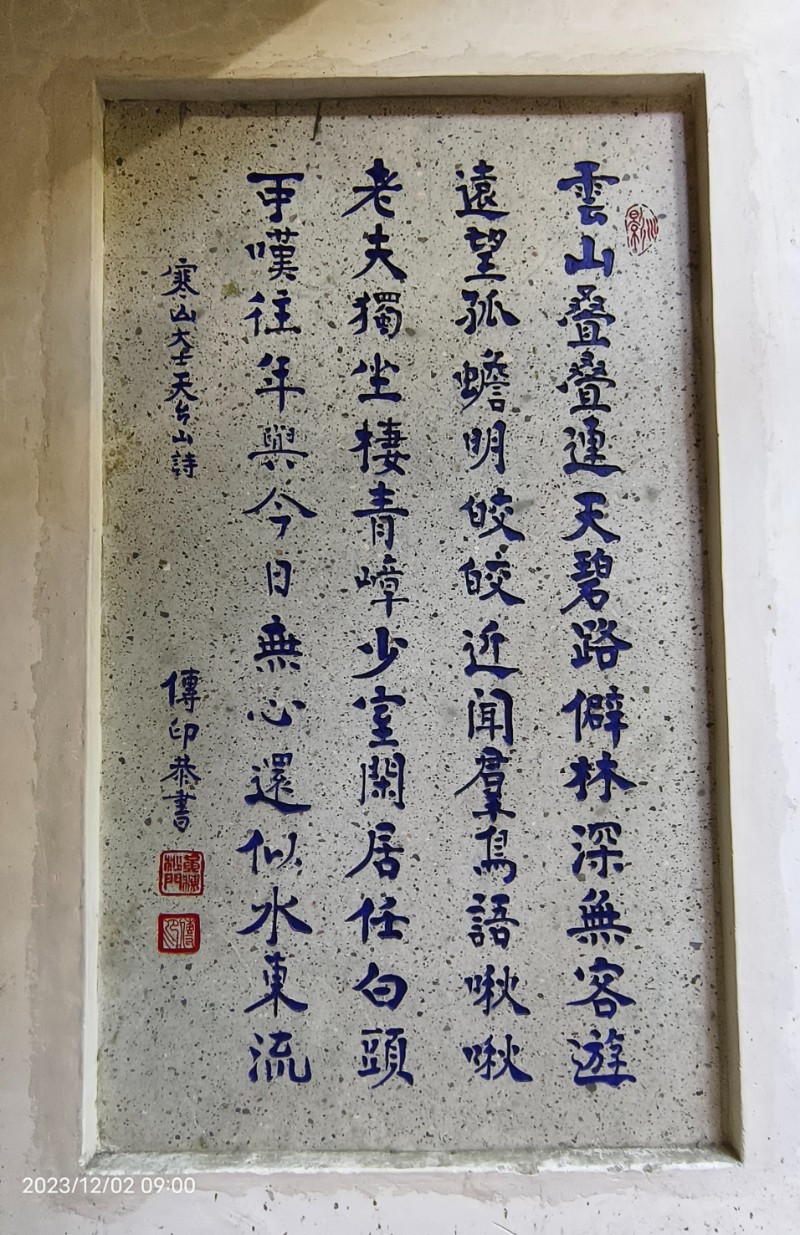 雲山叠叠連天碧路僻林深無客遊
遠望孤蟾明皎皎近聞羣鳥語啾啾
老夫獨坐棲青嶂少室閑居任白頭
可嘆往年與今日無心還似水東流
寒山大士天台山詩
傳印恭書
傳印
2023/12/02 09:00